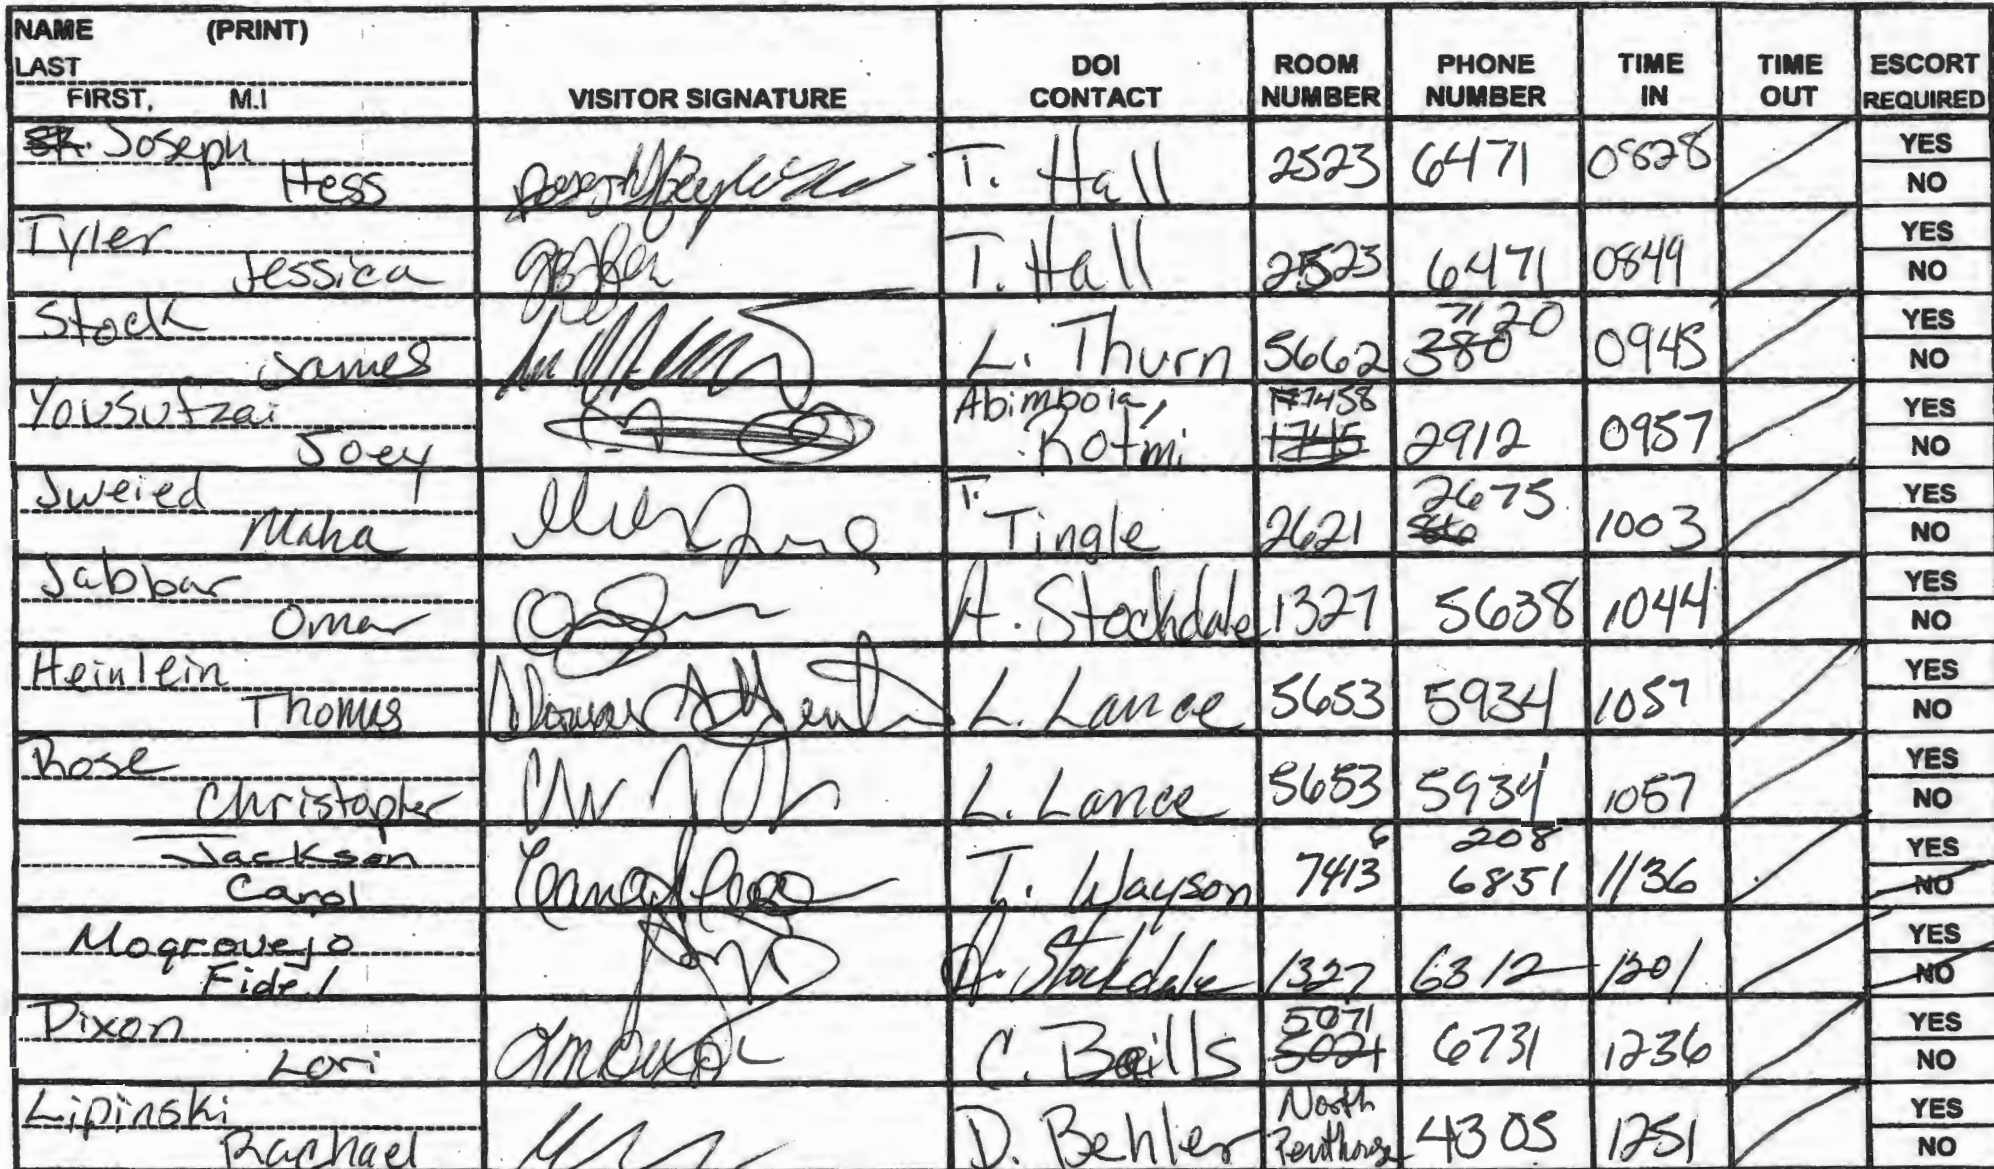 NAME (PRINT)
LAST
FIRST, M.I
VISITOR SIGNATURE
DOI CONTACT
ROOM NUMBER
PHONE NUMBER
TIME IN
TIME OUT
ESCORT REQUIRED
Joseph
Hess
T. Hall 2523 6471 0828
YES
NO
Tyler
Jessica
T. Hall 2523 6471 0849
YES
NO
Stock
James
L. Thurn 5662 7120 380 0945
YES
NO
Yousufzai
Joey
Abimbola,
Rotmi
7458 1745 2912 0957
YES
NO
Jweied
Maha
T.
Tingle 2621 2675 1003
YES
NO
Jabbar
Omar
A. Stockdale 1327 5638 1044
YES
NO
Heinlein
Thomas
L. Lance 5653 5934 1057
YES
NO
Rose
Christopher
L. Lance 5653 5934 1057
YES
NO
Jackson
Carol
T. Wayson 7413 6 208
6851 1136
YES
NO
Mogrovejo
Fidel
A. Stockdale 1327 6312 1201
YES
NO
Dixon
Lori
C. Beills 5071
5021 6731 1236
YES
NO
Lipinski
Raphael
D. Behler North
Penthouse 4305 1251
YES
NO